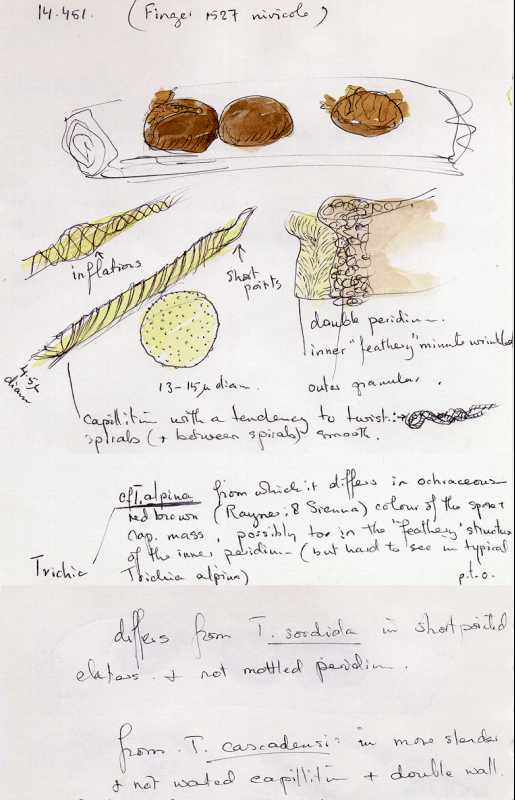 14.451. (Finger 1527 nivicole)
inflations
short
points
4.5µ
diam
13-15µ diam.
double peridium.
inner "feathery" minute wrinkled
outer granular.
capillitium with a tendency to twist:
spirals (+ between spirals) smooth.
cf T. alpina from which it differs in ochraceous
red brown (Rayner: 8 Sienna) colour of the spore +
cap. mass, possibly too in the "feathery" structure
of the inner peridium (but hard to see in typical
Trichia alpina)
Trichia
p.t.o.
differs from T. sordida in short pointed
elaters. + not mottled peridium.
from T. cascadensis in more slender
+ not warted capillitium + double wall.